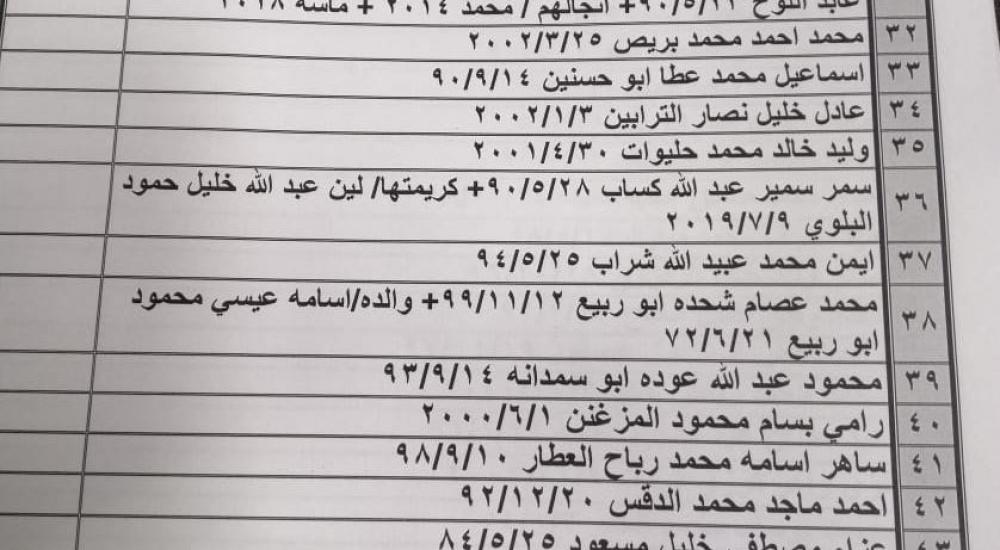 عابد اللوح ٩٠/٥/١١+ انجالهم / محمد ٢٠١٤ + ماسه ٢٠١٨
٣٢ محمد احمد محمد بريص ٢٠٠٢/٣/٢٥
٣٣ اسماعيل محمد عطا ابو حسنين ٩٠/٩/١٤
٣٤ عادل خليل نصار الترابين ٢٠٠٢/١/٣
٣٥ وليد خالد محمد حليوات ٢٠٠١/٤/٣٠
٣٦ سمر سمير عبد الله كساب ٩٠/٥/٢٨+ كريمتها/ لين عبد الله خليل حمود
البلوي ٢٠١٩/٧/٩
٣٧ ايمن محمد عبيد الله شراب ٩٤/٥/٢٥
٣٨ محمد عصام شحده ابو ربيع ٩٩/١١/١٢+ والده/اسامه عيسي محمود
ابو ربيع ٧٢/٦/٢١
٣٩ محمود عبد الله عوده ابو سمدانه ٩٣/٩/١٤
٤٠ رامي بسام محمود المزغنن ٢٠٠٠/٦/١
٤١ ساهر اسامه محمد رباح العطار ٩٨/٩/١٠
٤٢ احمد ماجد محمد الدقس ٩٢/١٢/٢٠
٤٣ مصطفى خليل مسعود ٨٤/٥/٢٥